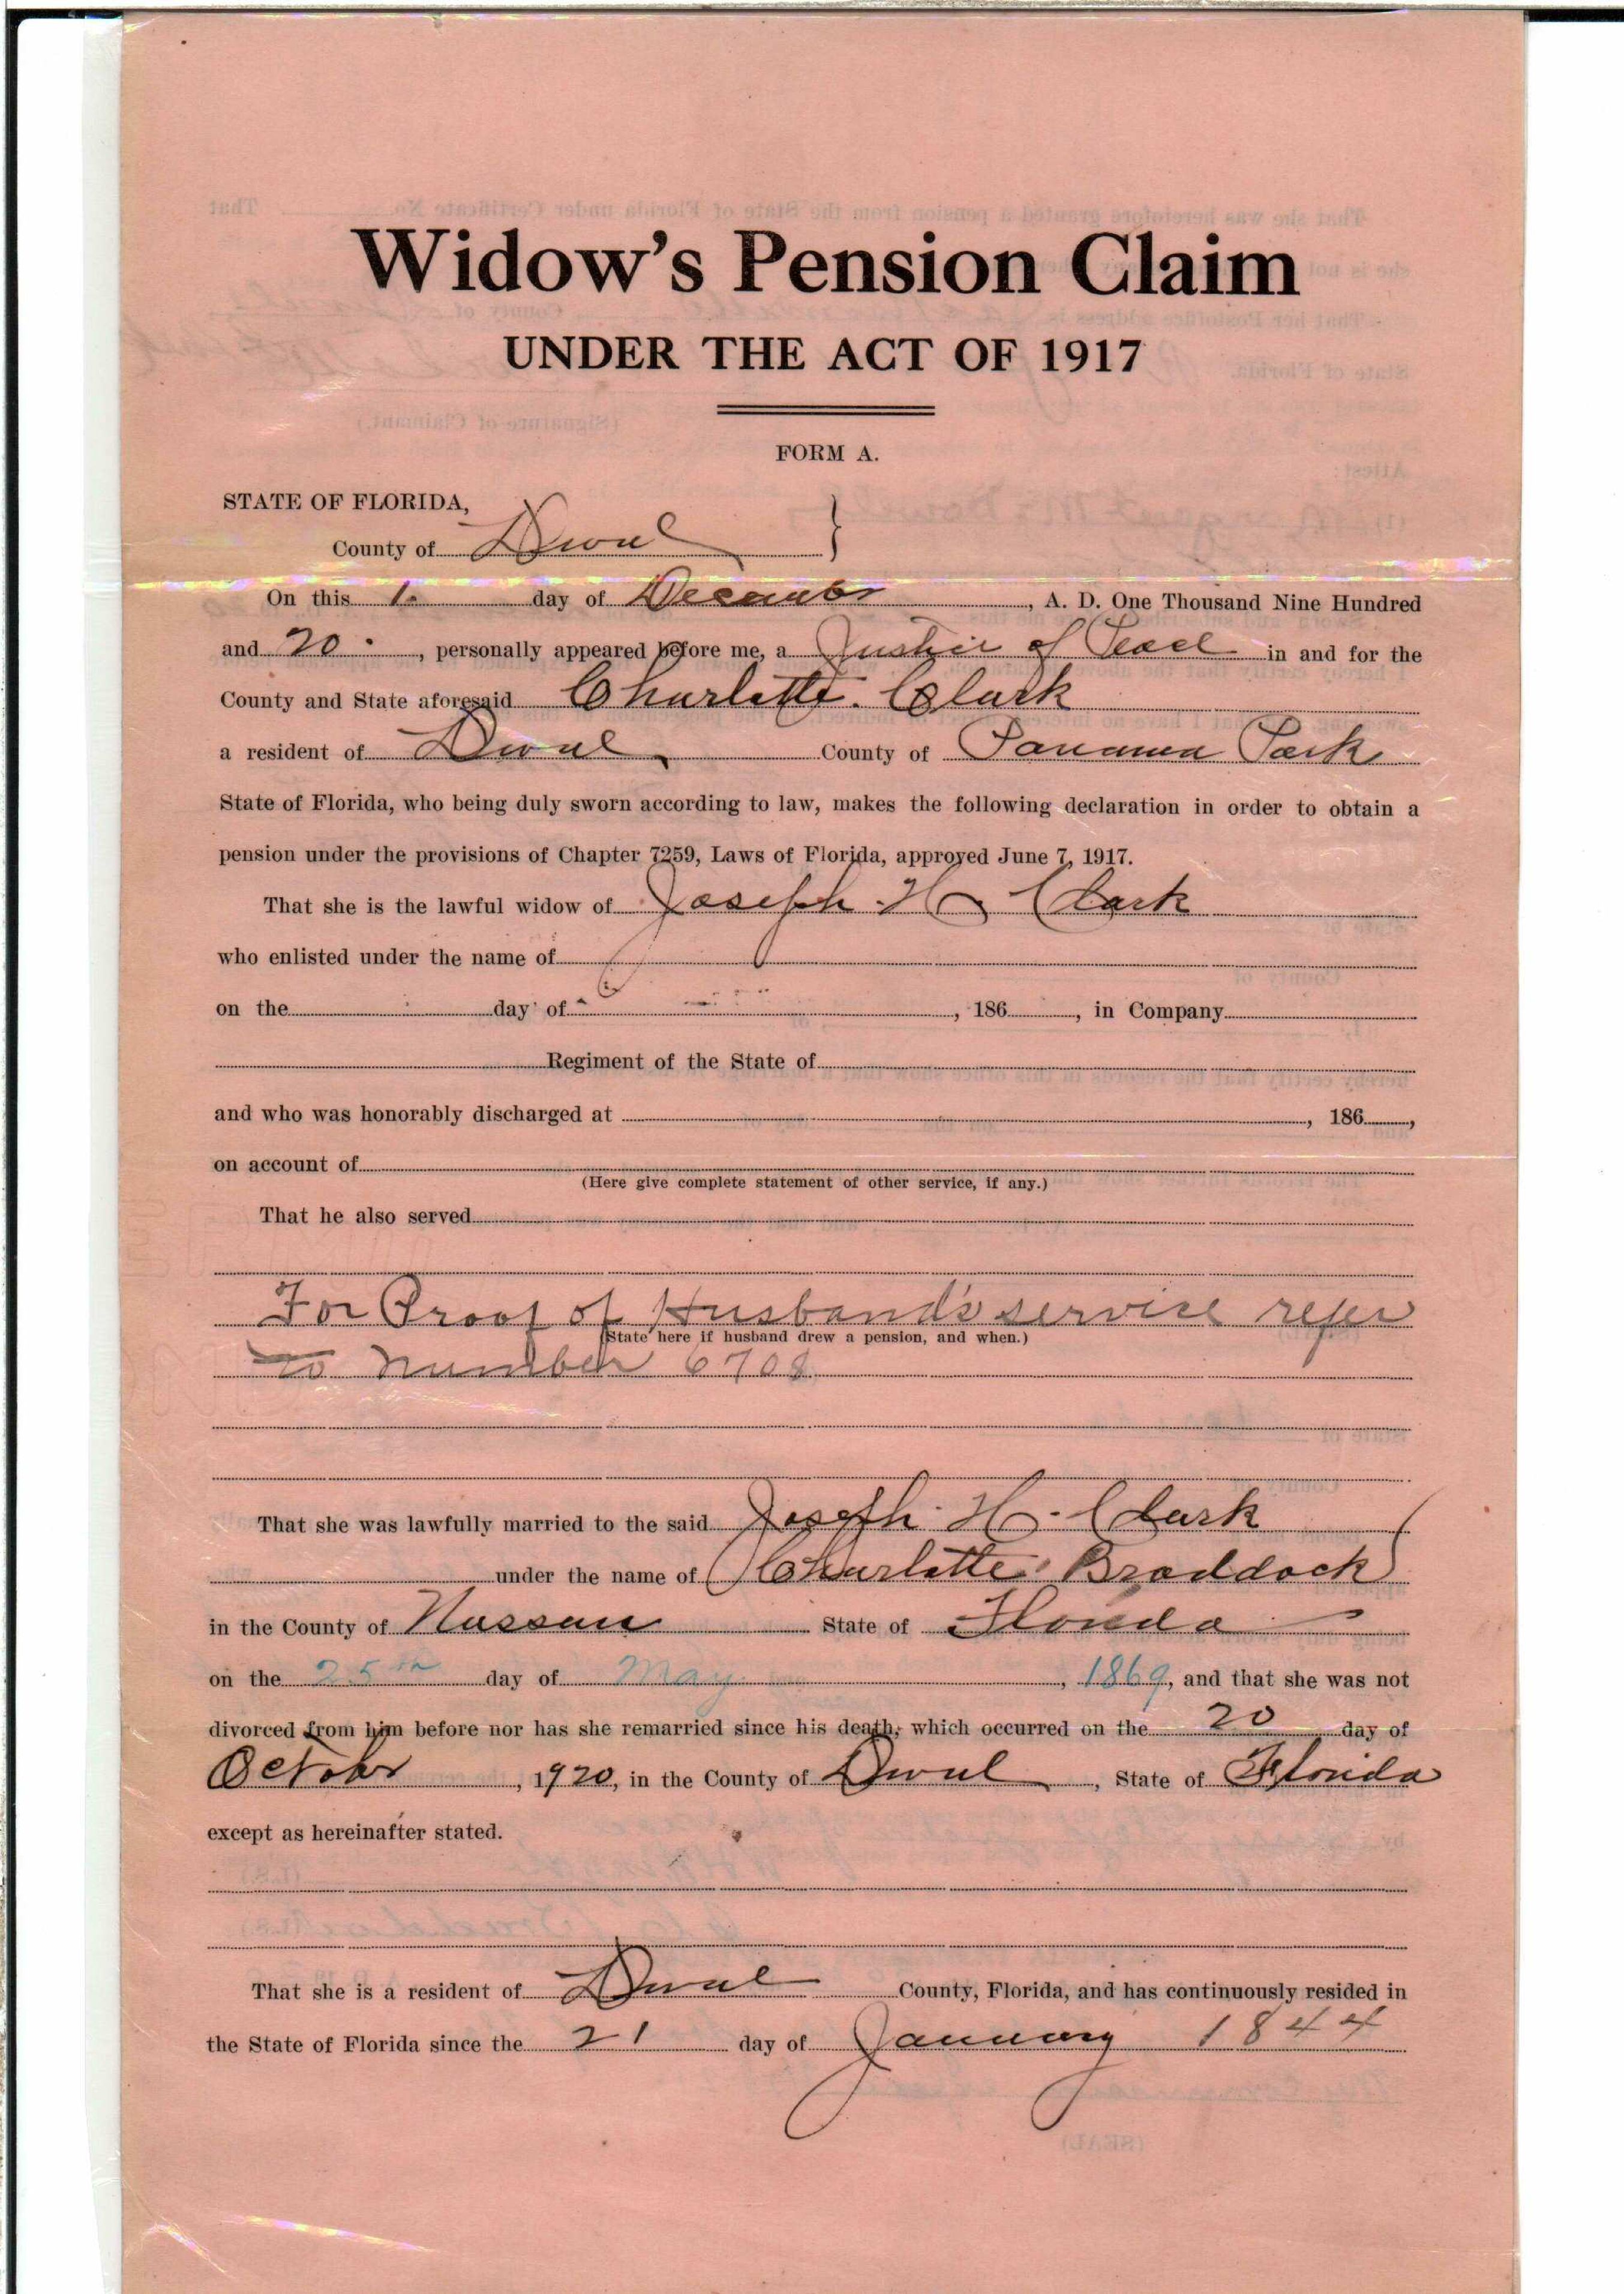 Widow's Pension Claim
UNDER THE ACT OF 1917
FORM A.
STATE OF FLORIDA,
County of Duval }
On this 1. day of December, A. D. One Thousand Nine Hundred
and 20., personally appeared before me, a Justice of Peace in and for the
County and State aforesaid Charlotte. Clark
a resident of Duval County of Panama Park
State of Florida, who being duly sworn according to law, makes the following declaration in order to obtain a
pension under the provisions of Chapter 7259, Laws of Florida, approved June 7, 1917.
That she is the lawful widow of Joseph H Clark
who enlisted under the name of
on the day of , 186 , in Company
Regiment of the State of
and who was honorably discharged at , 186 ,
on account of
(Here give complete statement of other service, if any.)
That he also served
For Proof of Husband's service refer
(State here if husband drew a pension, and when.)
to number 6708
That she was lawfully married to the said Joseph H. Clark
under the name of (Charlotte Braddock)
in the County of Nassau State of Florida
on the 25th day of May , 1869, and that she was not
divorced from him before nor has she remarried since his death, which occurred on the 20 day of
October , 1920, in the County of Duval , State of Florida
except as hereinafter stated.
That she is a resident of Duval County, Florida, and has continuously resided in
the State of Florida since the 21 day of January 1844